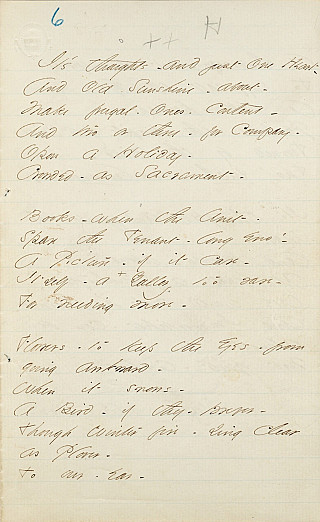 6
++ H
It's thoughts - and just One Heart -
And Old Sunshine - about -
Make frugal - Ones - Content -
And two or three - for Company -
Upon a Holiday -
Crowded - as Sacrament -
Books - when the Unit -
Spare the Tenant - long eno' -
A Picture - if it Care -
Itself - a + Gallery too rare -
For needing more -
Flowers - to keep the Eyes - from
going awkward -
When it snows -
A Bird - if they - prefer -
Though winter fire - sing clear
as Plover -
To our - Ear -